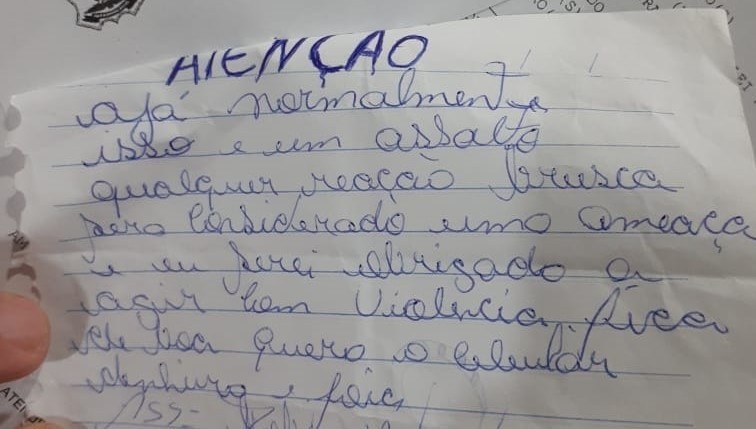 ATENÇÃO
ajá normalmente
isso e um assalto
qualquer reação brusca
sera considerado uma ameaça
e eu serei obrigado a
agir com violencia, fica
de boa quero o celular
dinhiro e
Ass-